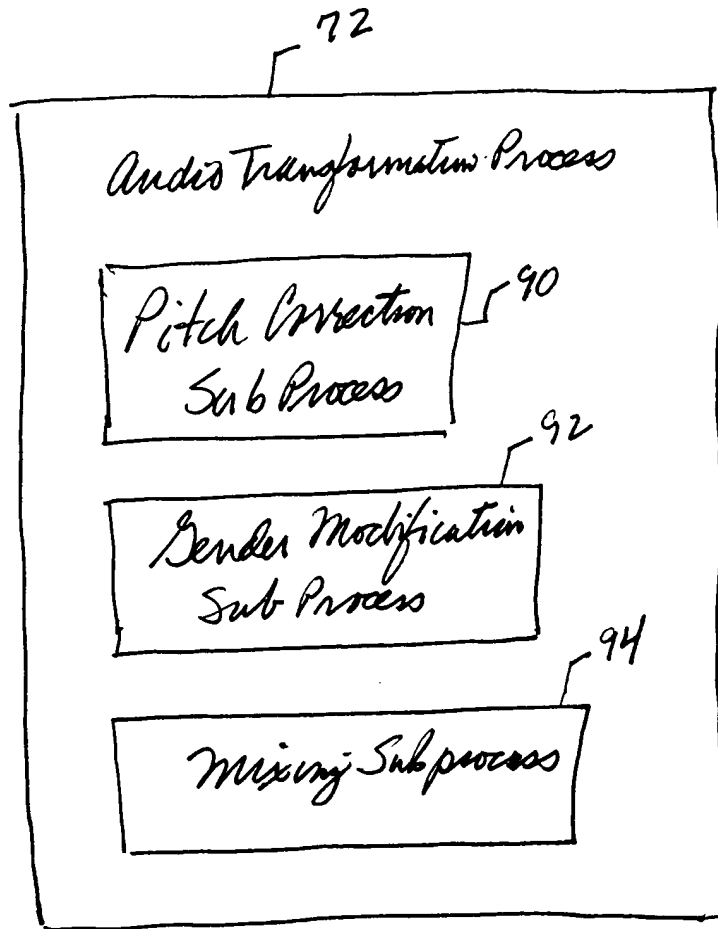 72
Audio Transformation Process
Pitch Correction
Sub Process
90
Gender Modification
Sub Process
92
Mixing Subprocess
94